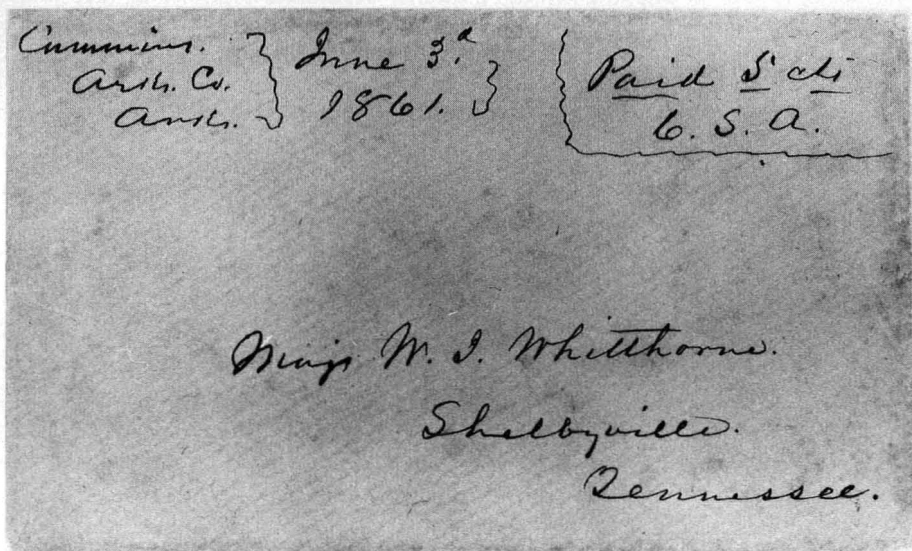 Cummins.
Arks. Co.
Arks.
June 3.d
1861.
Paid 5 cts
C. S. A.
Majr W. J. Whitthorne.
Shelbyville.
Tennessee.